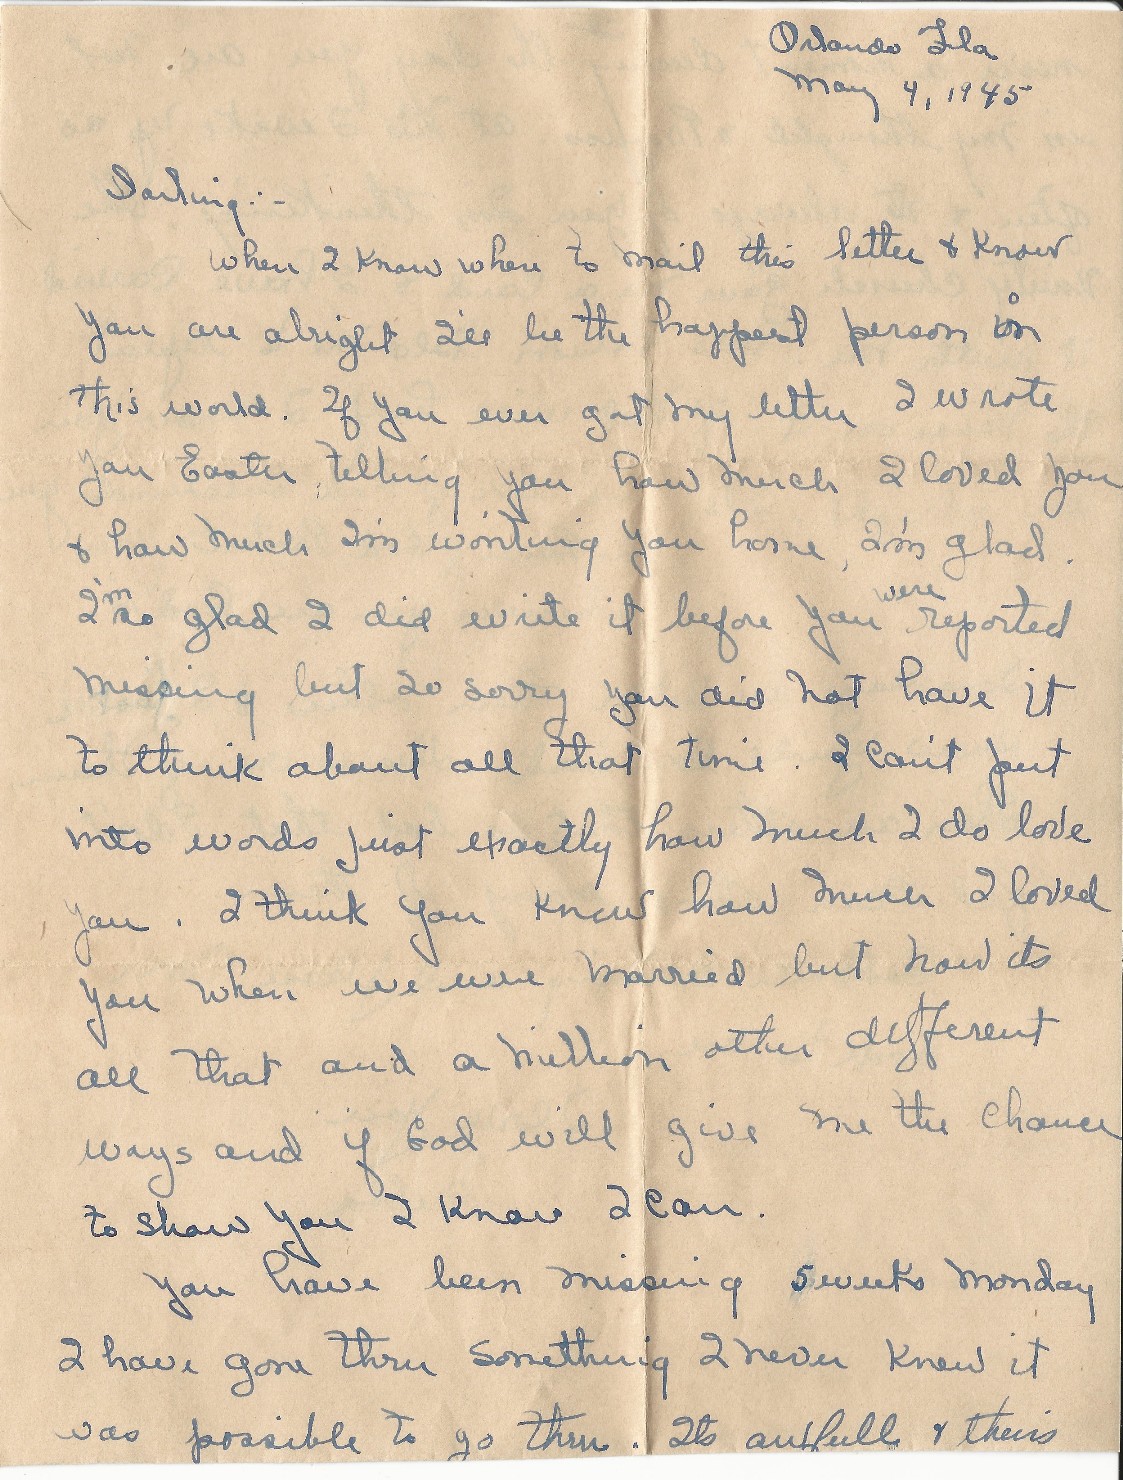 Orlando Fla
May 4, 1945
Darling:-
When I know where to mail this letter & know
you are alright I'll be the happest person in
this world. If you ever got my letter I wrote
you Easter, telling you how much I loved you
& how much I'm wanting you home, I'm glad.
I'm so glad I did write it before you were reported
missing but so sorry you did not have it
to think about all that time. I can't put
into words just exactly how much I do love
you. I think you knew how much I loved
you when we were married but now its
all that and a million other different
ways and if God will give me the chance
to show you I know I can.
You have been missing 5 weeks Monday
I have gone thru something I never knew it
was possible to go thru. Its awfull & theirs